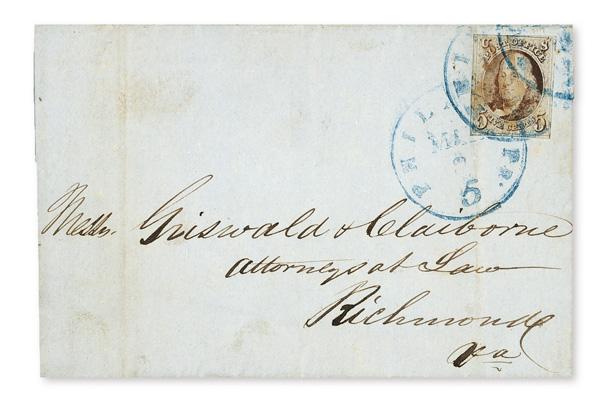 POST OFFICE
FIVE CENTS
5 5
PHIL
Pa.
5
Messrs. Griswald & Claiborne
Attorneys at Law
Richmond
Va